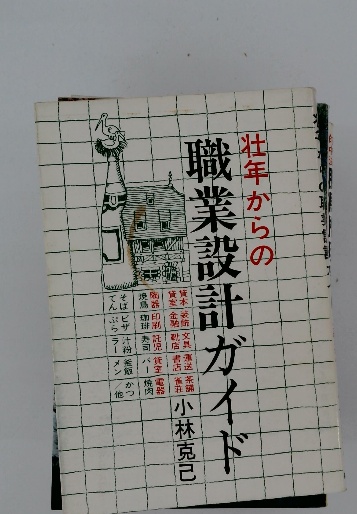 壮年からの
職業設計ガイド
小林克己
貸本 装飾 文具 運送 茶舗
貸室 金融 靴店 書店 雀荘
陶器 印刷 託児 貸室 電器
焼鳥 珈琲 寿司 バー 焼肉
そば ピザ 汁粉 釜飯 かつ
てんぷら ラーメン／他